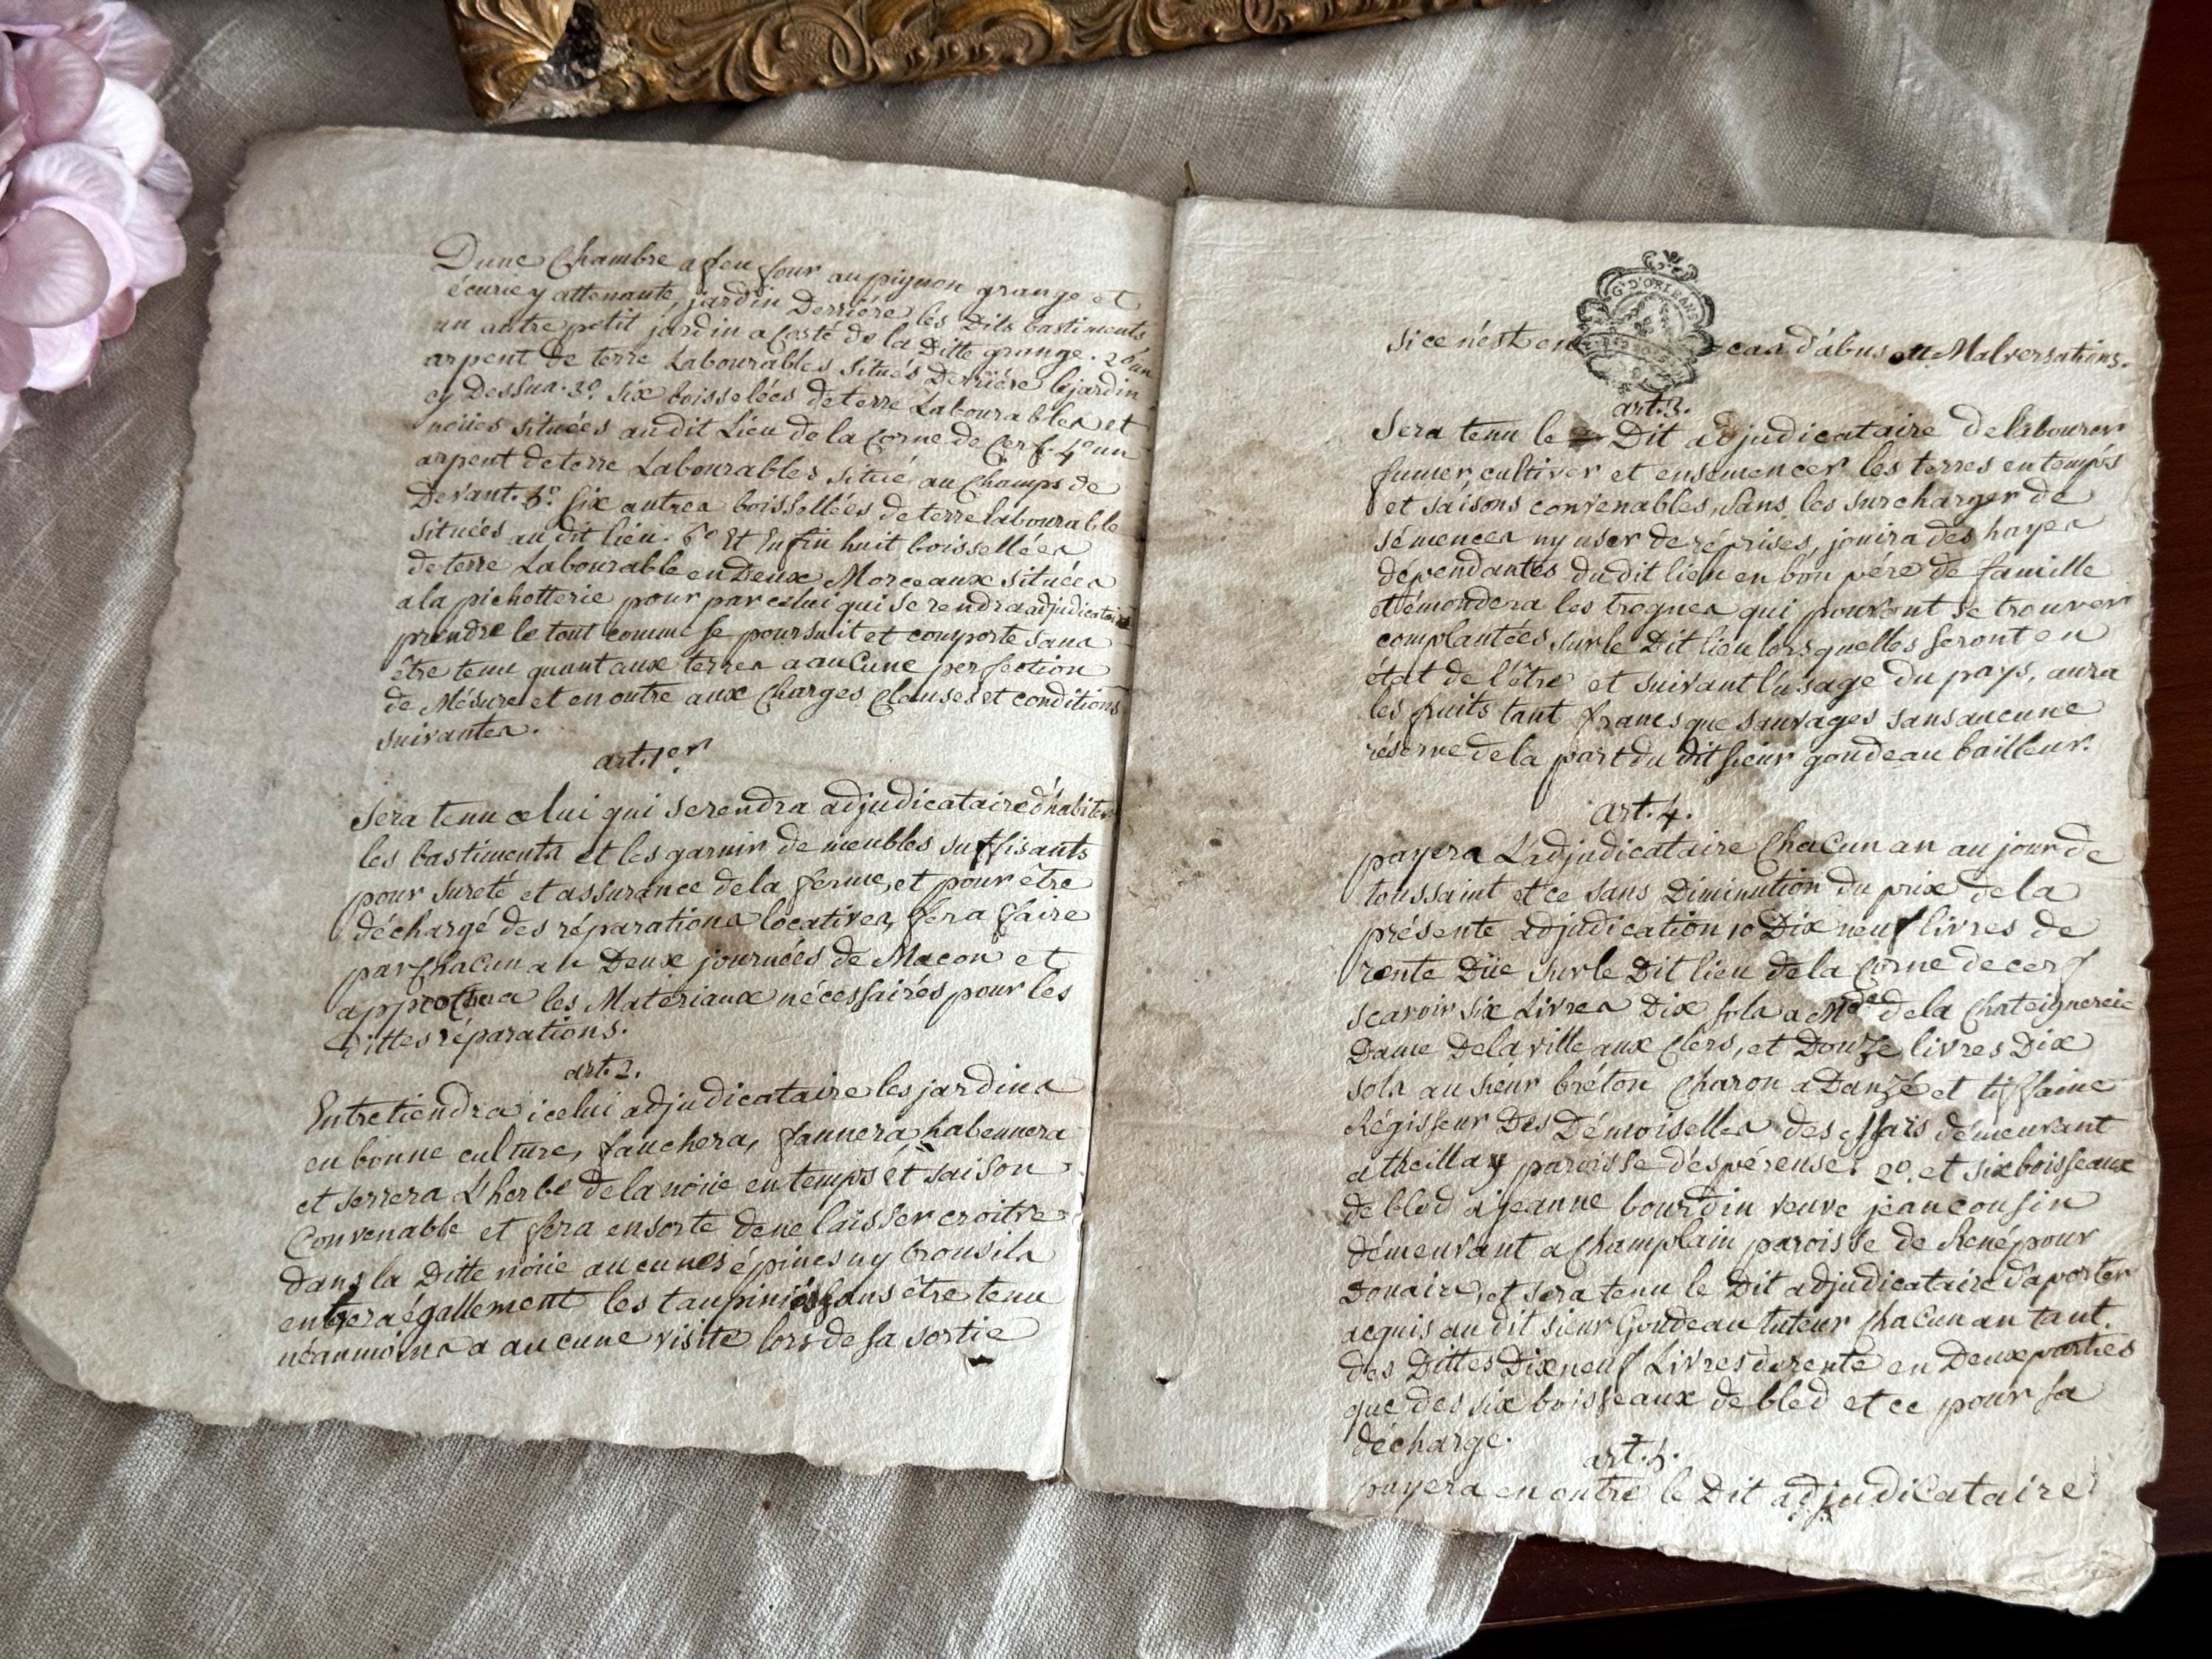 Dune Chambre a feu four au pignon grange et
écurie y attenante, jardin Derriére les Dits bastiments
un autre petit jardin a Costé de la Ditte grange. 2o. un
arpent de terre Labourables Situés Derriére le jardin
cy Dessus. 3o. Six boisselées de terre Labourables et
noües situées au dit Lieu de la Corne de Cerf. 4o un
arpent de terre Labourables situé au Champs de
Devant. 5o. Six autres boissellées de terre labourable
situées au dit lieu. 6o Et Enfin huit boissellées
de terre Labourable en Deux Morceaux situées
a la pichotterie pour par celui qui se rendra adjudicataire
prendre le tout comme se poursuit et comporte sans
être tenu quant aux terres a auCune perfection
de Mésure et en outre aux Charges Clauses et conditions
suivantes.
art. 1er.
Sera tenu celui qui se rendra adjudicataire d'habiter
les bastiments et les garnir de meubles suffisants
pour sureté et assurance de la ferme, et pour être
déchargé des réparations locatives, fera faire
par Chacun an Deux journées de Macon et
les Materiaux nécessaires pour les
Dittes réparations.
art. 2.
Entretiendra icelui adjudicataire les jardins
en bonne culture, fauchera, fannera,
et serrera L'herbe de la noüe en temps et saison
Convenable et fera ensorte de ne laisser croitre
dans la Ditte noüe aucunes épines ny
égallement les sans être tenu
néanmoins a aucune visite lors de sa sortie
si ce n'est en G. D'ORLEANS cas d'abus ou Malversations.
art. 3.
Sera tenu le Dit adjudicataire de labourer
fumer, cultiver et ensemencer les terres en temps
et saisons convenables, sans les surcharger de
sémences ny user de réprises, jouira des hayes
dépendantes du dit lieu en bon pére de famille
et émondera les trognes qui pouront se trouver
complantées sur le Dit lieu lorsquelles seront en
état de l'être et suivant l'usage du pays, aura
les fruits tant francs que sauvages sans aucune
réserve de la part du Dit Sieur goudeau bailleur.
art. 4.
payera L'adjudicataire ChaCun an au jour de
toussaint et ce sans Diminution du prix de la
présente adjudication 1o Dix neuf livres de
rente Düe sur le Dit lieu de la Corne de cerf
scavoir six Livres Dix sols a Mde de la Chateigneraie
Dame De la ville aux Clers, et Douze livres Dix
sols au sieur bréton Charon a Danzé et tiffaine
Régisseur Des Démoiselles des démeurant
a paroisse d'espéreuse. 2o. et six boisseaux
de bled a jeanne bourdin veuve jean cousin
démeurant a Champlain paroisse de René pour
Douaire, et sera tenu le Dit adjudicataire d'aporter
acquis au dit sieur Goudeau tuteur Chacun an tant.
des Dittes Dix neuf Livres de rente en Deux parties
que des six boisseaux de bled et ce pour sa
décharge.
art. 5.
payera en outre le Dit adjudiCataire